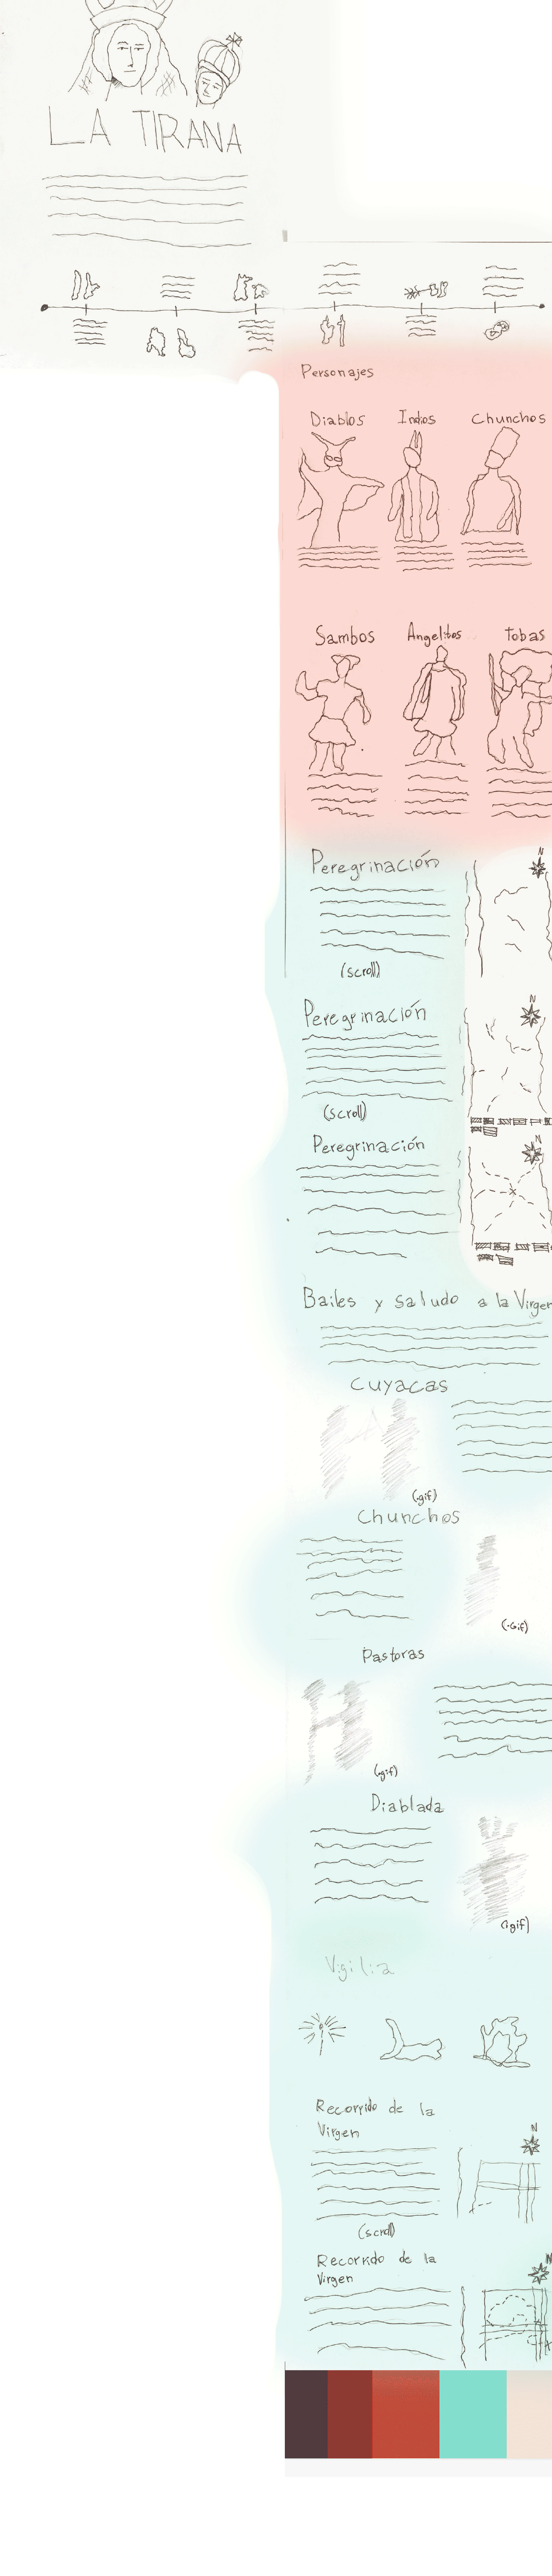 LA TIRANA
Personajes
Diablos Indios Chunchos
Sambos Angelitos Tobas
Peregrinación
N
(scroll)
Peregrinación
N
(scroll)
Peregrinación
N
Bailes y saludo a la Virgen
Cuyacas
(.gif)
Chunchos
(.Gif)
Pastoras
(.gif)
Diablada
(.gif)
Vigilia
Recorrido de la
Virgen
N
(scroll)
Recorrido de la
Virgen
N